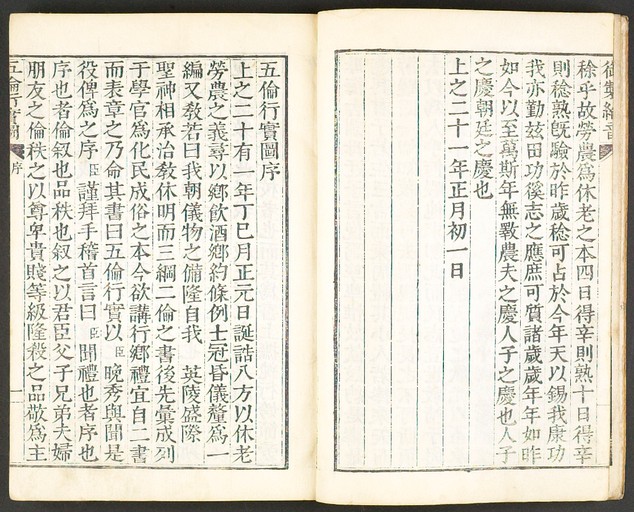 御製綸音
稌乎故勞農爲休老之本四日得辛則熟十日得辛
則稔熟旣驗於昨歲稔可占於今年天以錫我康功
我亦勤玆田功徯志之應庶可質諸歲歲年年如昨
如今以至萬斯年無斁農夫之慶人子之慶也人子
之慶朝廷之慶也
上之二十一年正月初一日
五倫行實圖序
上之二十有一年丁巳月正元日誕誥八方以休老
勞農之義尋以鄕飮酒鄕約條例士冠昏儀釐爲一
編又敎若曰我朝儀物之備隆自我 英陵盛際
聖神相承治敎休明而三綱二倫之書後先彙成列
于學官爲化民成俗之本今欲講行鄕禮宜自二書
而表章之乃命其書曰五倫行實以 臣 晚秀與聞是
役俾爲之序 臣 謹拜手稽首言曰 臣 聞禮也者序也
序也者倫叙也品秩也叙之以君臣父子兄弟夫婦
朋友之倫秩之以尊卑貴賤等級隆殺之品敬爲主
五倫行實圖 序 一